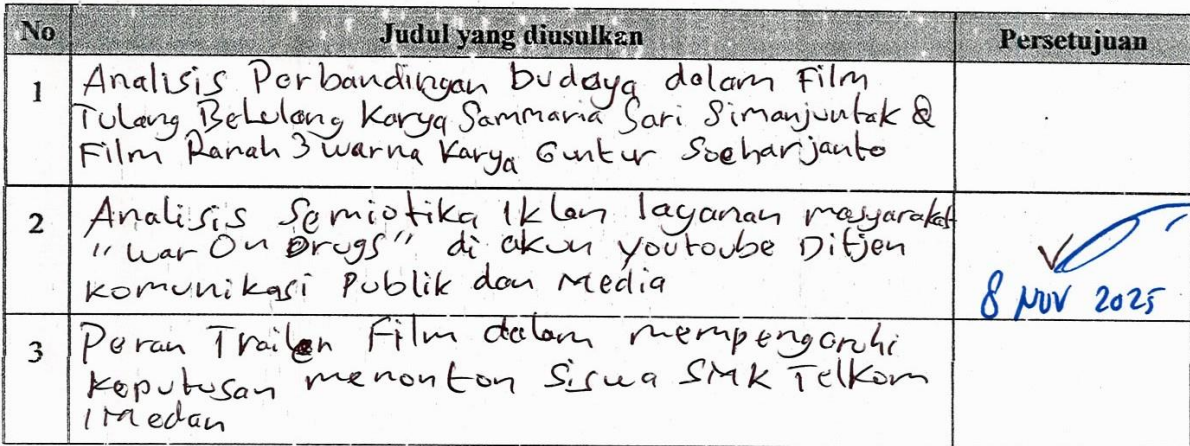 No Judul yang diusulkan Persetujuan
1 Analisis Perbandingan budaya dalam Film
Tulang Belulang Karya Sammaria Sari Simanjuntak &
Film Ranah 3 warna Karya Guntur Soeharijanto
2 Analisis Semiotika Iklan layanan masyarakat
"War On Drugs" di akun youtoube Ditjen
Komunikasi Publik dan Media
8 NOV 2025
3 Peran Trailer Film dalam mempengaruhi
Keputusan menonton Siswa SMK Telkom
1 Medan